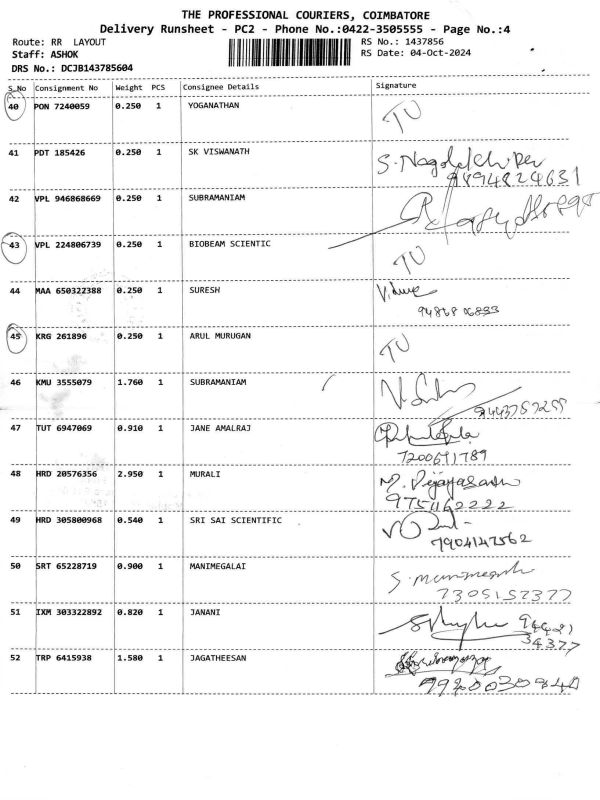 THE PROFESSIONAL COURIERS, COIMBATORE
Delivery Runsheet - PC2 - Phone No.:0422-3505555 - Page No.:4
Route: RR LAYOUT RS No.: 1437856
Staff: ASHOK RS Date: 04-Oct-2024
DRS No.: DCJB143785604
S_No Consignment No Weight PCS Consignee Details Signature
40 PON 7240059 0.250 1 YOGANATHAN TU
41 PDT 185426 0.250 1 SK VISWANATH
9894824631
42 VPL 946868669 0.250 1 SUBRAMANIAM
43 VPL 224806739 0.250 1 BIOBEAM SCIENTIC TU
44 MAA 650322388 0.250 1 SURESH
45 KRG 261896 0.250 1 ARUL MURUGAN TU
46 KMU 3555079 1.760 1 SUBRAMANIAM
47 TUT 6947069 0.910 1 JANE AMALRAJ
7200691789
48 HRD 20576356 2.950 1 MURALI
9751162222
49 HRD 305800968 0.540 1 SRI SAI SCIENTIFIC
7904147562
50 SRT 65228719 0.900 1 MANIMEGALAI
7305152377
51 IXM 303322892 0.820 1 JANANI
34377
52 TRP 6415938 1.580 1 JAGATHEESAN